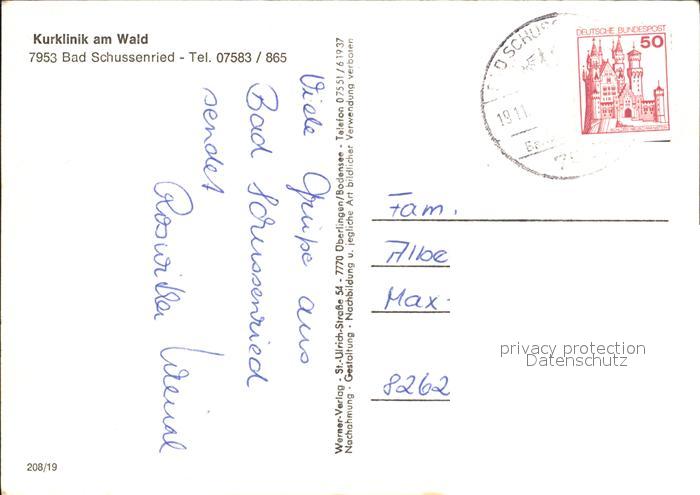 Kurklinik am Wald
7953 Bad Schussenried - Tel. 07583 / 865
Viele Grüße aus
Bad Schussenried
sendet
Roswitha
Werner-Verlag · St.-Ulrich-Straße 54 · 7770 Überlingen/Bodensee · Telefon 07551/61937
Nachahmung · Gestaltung · Nachbildung u. jegliche Art bildlicher Verwendung verboten
DEUTSCHE BUNDESPOST
50
D SCHUSS
19.11
Fam.
Albe
Max.
8262
privacy protection
Datenschutz
208/19